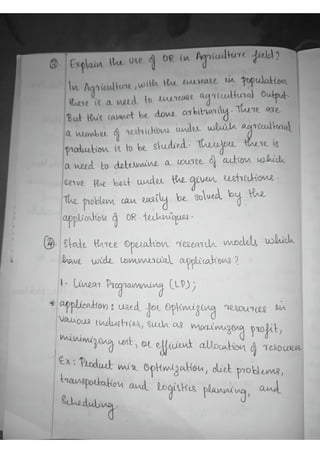 ③ Explain the use of OR in Agriculture field?
In Agriculture, with the increase in population
there is a need to increase agricultural output.
But this cannot be done arbitrarily. There are
a number of restrictions under which agricultural
production is to be studied. Therefore there is
a need to determine a course of action which
serve the best under the given restrictions.
The problem can easily be solved by the
application of OR techniques.
④ State three operation research models which
have wide commercial applications?
1. Linear Programming (LP);
* application: used for optimizing resources in
various industries, such as maximizing profit,
minimizing cost, or efficient allocation of resources
Ex: Product mix optimization, diet problems,
transportation and logistics planning, and
scheduling.